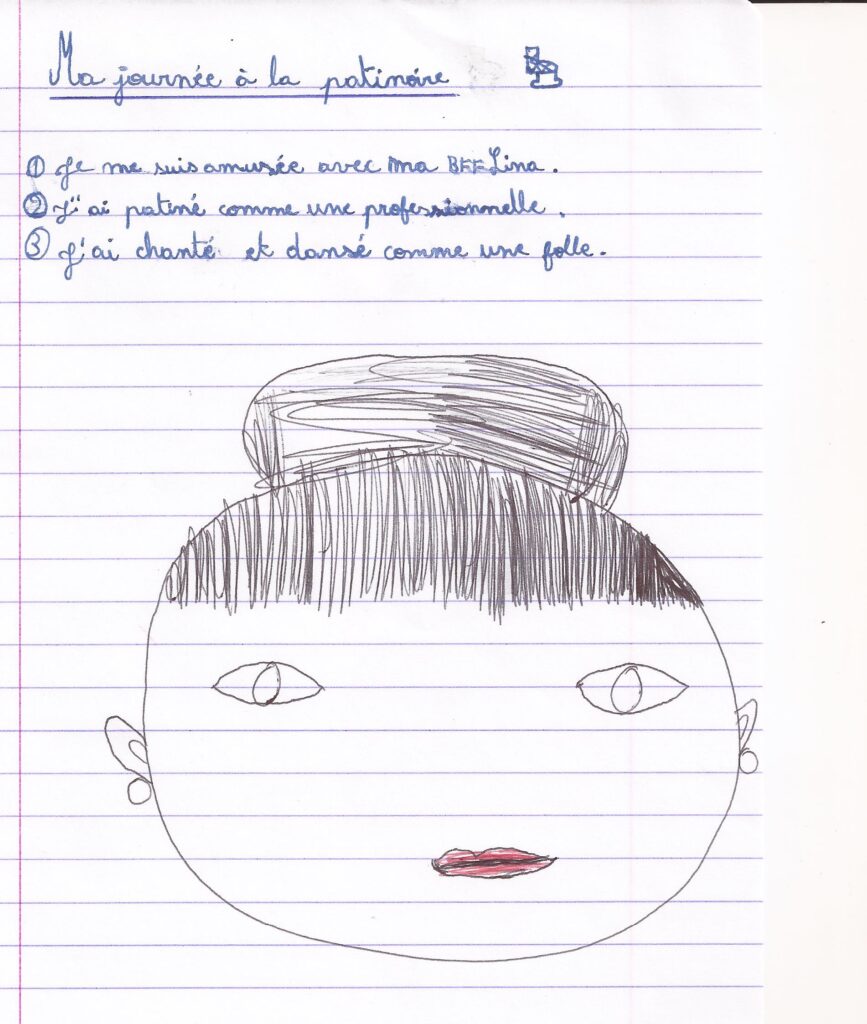 Ma journée à la patinoire
① Je me suis amusée avec ma BFF Lina.
② J'ai patiné comme une professionnelle.
③ J'ai chanté et dansé comme une folle.